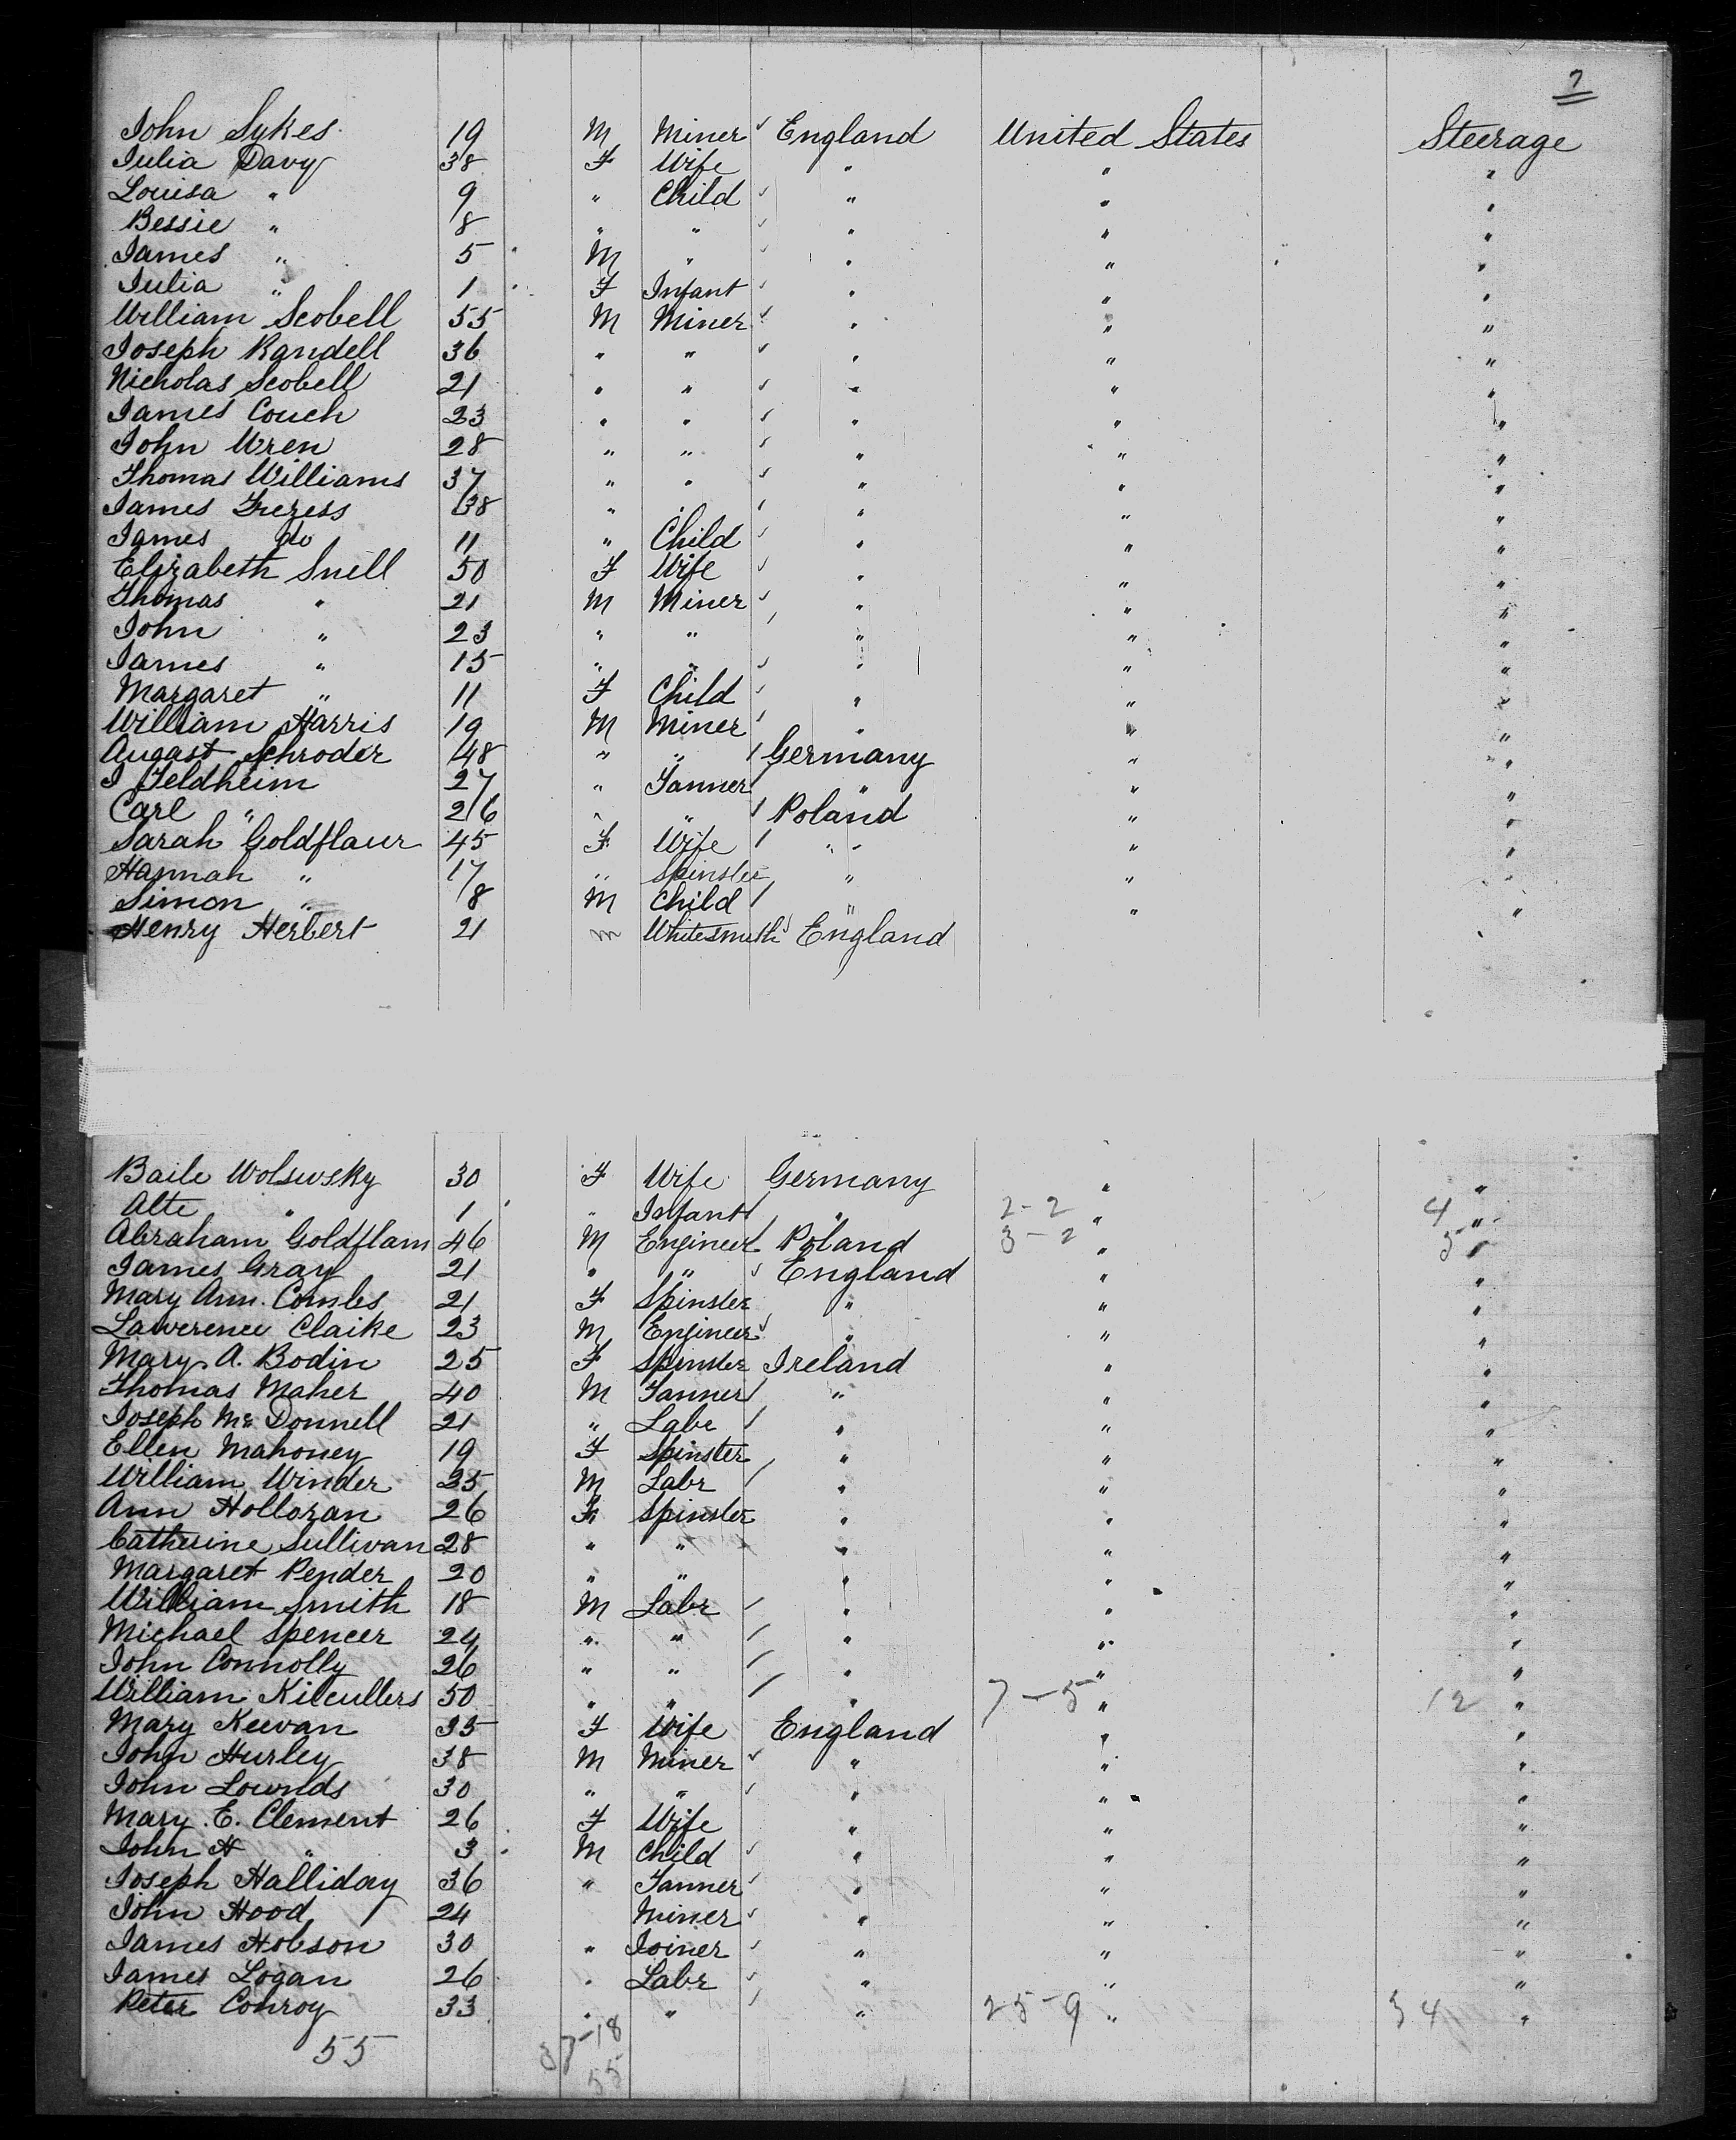 7
John Sykes 19 M Miner ✓ England United States Steerage
Julia Davy 38 F Wife " " "
Louisa " 9 " Child ✓ " " "
Bessie " 8 " " ✓ " " "
James " 5 M " ✓ " " "
Julia " 1 F Infant ✓ " " "
William Scobell 55 M Miner ✓ " " "
Joseph Randell 36 " " ✓ " " "
Nicholas Scobell 21 " " ✓ " " "
James Couch 23 " " ✓ " " "
John Wren 28 " " ✓ " " "
Thomas Williams 37 " " ✓ " " "
James Trezess 38 " " / " " "
James do 11 " Child ✓ " " "
Elizabeth Snell 50 F Wife ✓ " " "
Thomas " 21 M Miner ✓ " " "
John " 23 " " / " " "
James " 15 " " ✓ " " "
Margaret " 11 F Child ✓ " " "
William Harris 19 M Miner / " " "
August Schroder 48 " " / Germany " "
I Feldheim 27 " Tanner / " " "
Carl " 26 " " / Poland " "
Sarah Goldflaur 45 F Wife / " " "
Hannah " 17 " Spinster " " "
Simon " 8 M Child / " " "
Henry Herbert 21 m Whitesmith ✓ England
Baile Wolswsky 30 F Wife Germany " "
Alte " 1 " Infant / " 2-2 " 4 "
Abraham Goldflam 46 M Engineer / Poland 3-2 " 5 "
James Gray 21 " " ✓ England " "
Mary Ann. Combes 21 F Spinster " " "
Lawerence Claike 23 M Engineer ✓ " " "
Mary A. Bodin 25 F Spinster Ireland " "
Thomas Maher 40 M Tanner / " " "
Joseph Mc Donnell 21 " Labr / " " "
Ellen Mahoney 19 F Spinster " " "
William Winder 25 M Labr / " " "
Ann Holloran 26 F Spinster " " "
Catherine Sullivan 28 " " " " "
Margaret Pender 20 " " " " "
William Smith 18 M Labr / " " "
Michael Spencer 24 " " / " " "
John Connolly 26 " " / " " "
William Kilcullers 50 " " / " 7-5 " 12 "
Mary Keevan 35 F Wife England " "
John Hurley 38 M Miner ✓ " " "
John Lownds 30 " " ✓ " " "
Mary. E. Clement 26 F Wife " " "
John H " 3 M Child ✓ " " "
Joseph Halliday 36 " Tanner ✓ " " "
John Hood 24 Miner ✓ " " "
James Hobson 30 " Joiner ✓ " " "
James Logan 26 " Labr ✓ " " "
Peter Conroy 33 " " / " 25-9 " 34 "
55 37-18
55